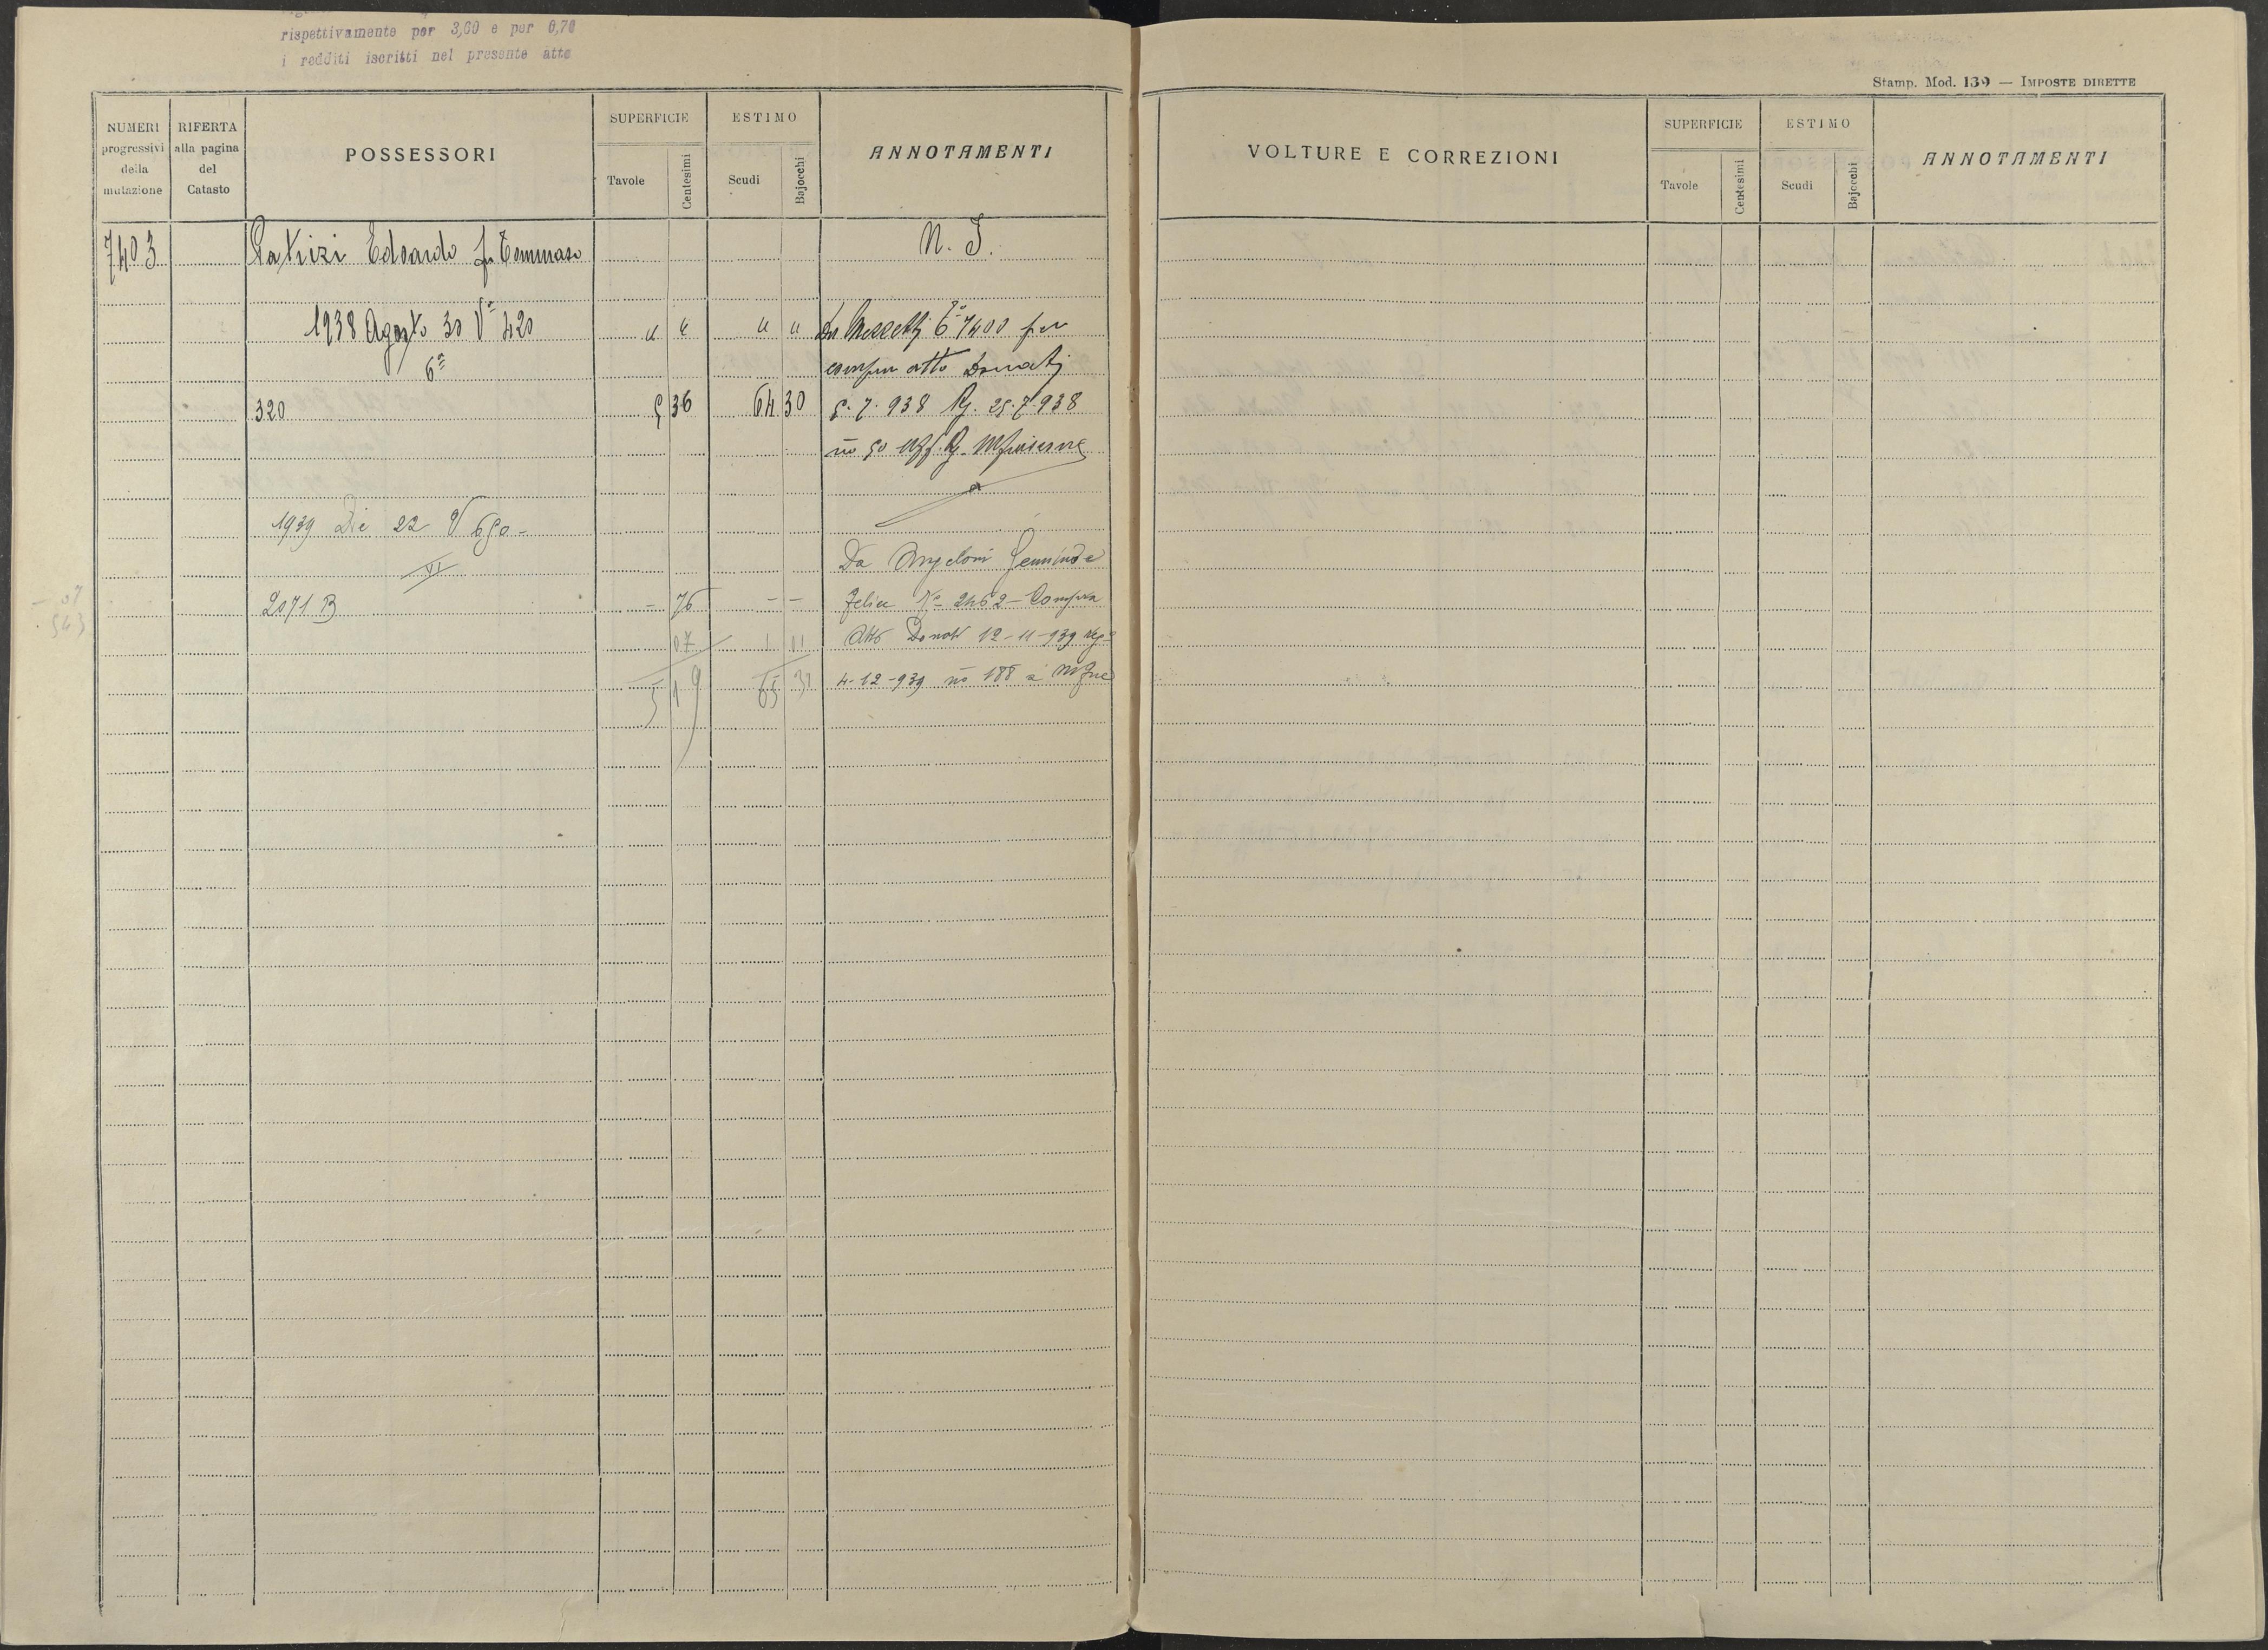 rispettivamente per 3,60 e per 0,70
i redditi iscritti nel presente atto
Stamp. Mod. 139 — IMPOSTE DIRETTE
NUMERI progressivi della mutazione
RIFERTA alla pagina del Catasto
POSSESSORI
SUPERFICIE
Tavole
Centesimi
ESTIMO
Scudi
Bajocchi
ANNOTAMENTI
VOLTURE E CORREZIONI
SUPERFICIE
Tavole
Centesimi
ESTIMO
Scudi
Bajocchi
ANNOTAMENTI
7403 Patrizi Edoardo fu Tommaso N. I.
1938 Agosto 30 Va 420 " " " " 7400 per
6a compra atto Donati
320 5 36 64 30 5.7.938 Rg. 25.7.938
no 50 Uff. Rg.
1939 Die 22 V 690 -
VI Da Angeloni
2071 B - 76 - - Felice No 2462 - Compra
07 1 01 Atto Donati 12-11-939
5 19 65 31 4-12-939 no 188 a
- 07
. 543